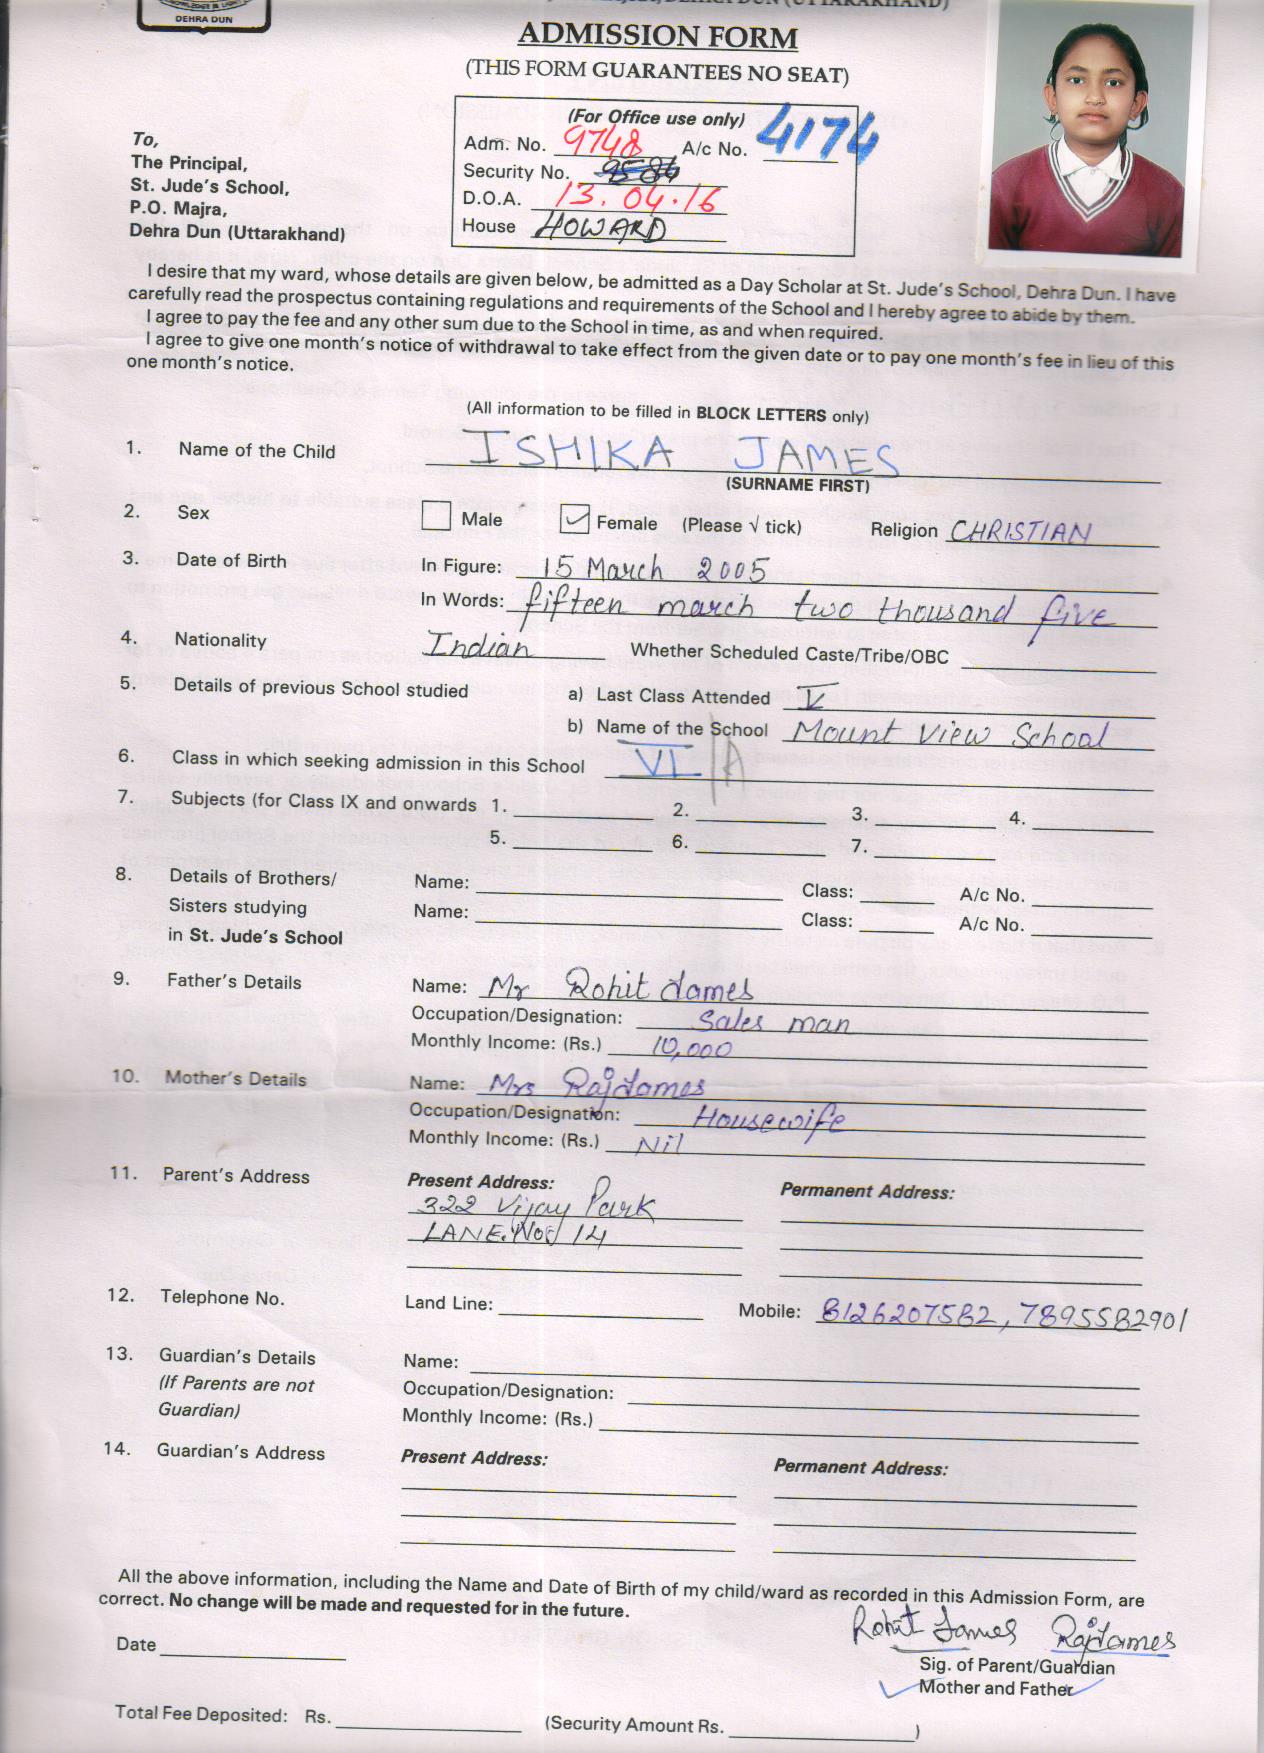 DEHRA DUN
DEHRA DUN (UTTARAKHAND)
ADMISSION FORM
(THIS FORM GUARANTEES NO SEAT)
(For Office use only)
Adm. No. 9748 A/c No. 4174
Security No.
D.O.A. 13.04.16
House HOWARD
To,
The Principal,
St. Jude's School,
P.O. Majra,
Dehra Dun (Uttarakhand)
I desire that my ward, whose details are given below, be admitted as a Day Scholar at St. Jude's School, Dehra Dun. I have
carefully read the prospectus containing regulations and requirements of the School and I hereby agree to abide by them.
I agree to pay the fee and any other sum due to the School in time, as and when required.
I agree to give one month's notice of withdrawal to take effect from the given date or to pay one month's fee in lieu of this
one month's notice.
(All information to be filled in BLOCK LETTERS only)
1. Name of the Child ISHIKA JAMES
(SURNAME FIRST)
2. Sex Male Female (Please √ tick) Religion CHRISTIAN
3. Date of Birth In Figure: 15 March 2005
In Words: fifteen march two thousand five
4. Nationality Indian Whether Scheduled Caste/Tribe/OBC
5. Details of previous School studied a) Last Class Attended V
b) Name of the School Mount View School
6. Class in which seeking admission in this School VI A
7. Subjects (for Class IX and onwards 1. 2. 3. 4.
5. 6. 7.
8. Details of Brothers/ Name: Class: A/c No.
Sisters studying Name: Class: A/c No.
in St. Jude's School
9. Father's Details Name: Mr Rohit James
Occupation/Designation: Sales man
Monthly Income: (Rs.) 10,000
10. Mother's Details Name: Mrs Raj James
Occupation/Designation: Housewife
Monthly Income: (Rs.) Nil
11. Parent's Address Present Address: Permanent Address:
322 Vijay Park
LANE. No 14
12. Telephone No. Land Line: Mobile: 8126207582, 7895582901
13. Guardian's Details Name:
(If Parents are not Occupation/Designation:
Guardian) Monthly Income: (Rs.)
14. Guardian's Address Present Address: Permanent Address:
All the above information, including the Name and Date of Birth of my child/ward as recorded in this Admission Form, are
correct. No change will be made and requested for in the future.
Rohit James Raj James
Date
Sig. of Parent/Guardian
Mother and Father
Total Fee Deposited: Rs. (Security Amount Rs. )